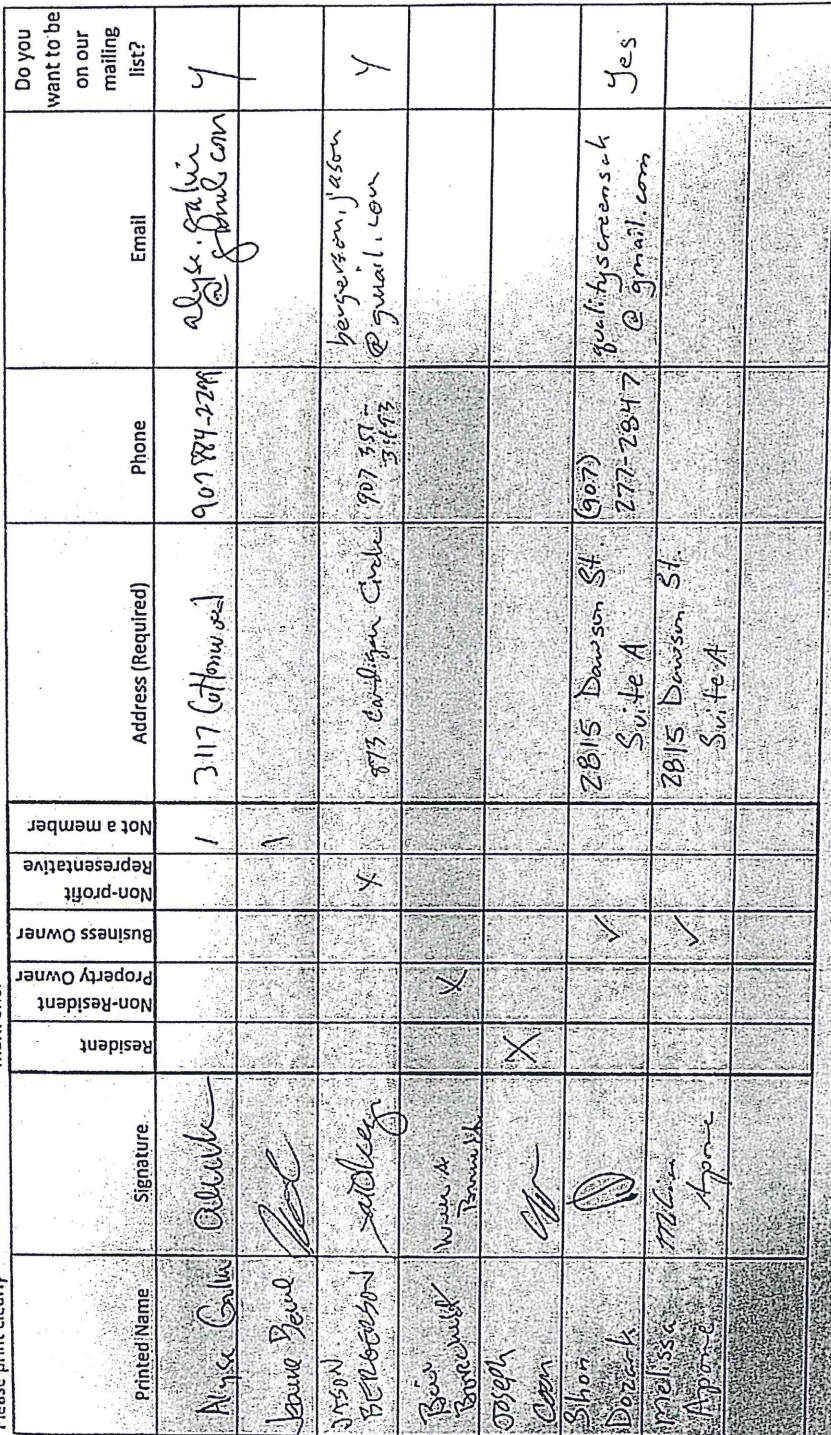 Please print clearly
Printed Name
Signature
Resident
Non-Resident
Property Owner
Business Owner
Non-profit
Representative
Not a member
Address (Required)
Phone
Email
Do you
want to be
on our
mailing
list?
Alyse
3117 Cottonwood
907 884-2299
alyse.galvin
@gmail.com
Y
JASON
BERGERSON
X
873 Cardigan Circle
907 351-
3473
bergerson.jason
@gmail.com
Y
X
JOSEPH
X
Shon
Dozark
✓
2815 Dawson St.
Suite A
(907)
277-2847
qualityscreensak
@gmail.com
Yes
Melissa
Appone
Melissa
Appone
✓
2815 Dawson St.
Suite A